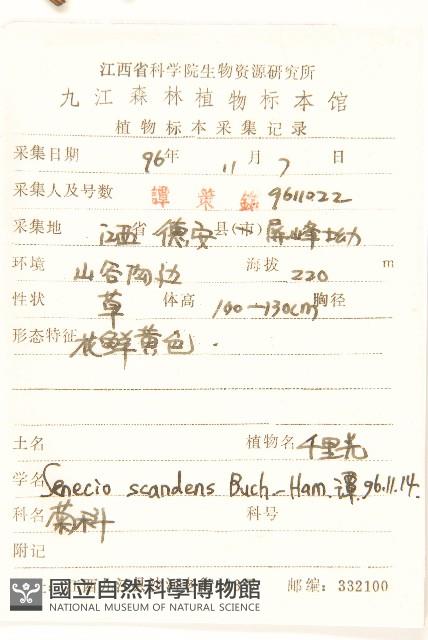 江西省科学院生物资源研究所
九江森林植物标本馆
植物标本采集记录
采集日期 96年 11月 7日
采集人及号数 譚策銘 9611022
采集地 江西省 德安县(市) 屏峰坳
环境 山谷 边 海拔 220 m
性状 草 体高 100—130cm 胸径
形态特征 花鲜黄色.
土名 植物名 千里光
学名 Senecio scandens Buch-Ham. 譚 96.11.14.
科名 菊科 科号
附记
邮编: 332100
國立自然科學博物館
NATIONAL MUSEUM OF NATURAL SCIENCE